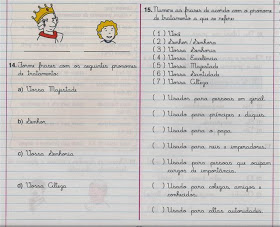 14. Forme frases com os seguintes pronomes de tratamento:
a) Vossa Majestade
b) Senhor
c) Vossa Senhoria
d) Vossa Alteza
15. Numere as frases de acordo com o pronome de tratamento a que se refere:
( 1 ) Você
( 2 ) Senhor / Senhora
( 3 ) Vossa Senhoria
( 4 ) Vossa Excelência
( 5 ) Vossa Majestade
( 6 ) Vossa Santidade
( 7 ) Vossa Alteza
( ) Usados para pessoas em geral.
( ) Usado para príncipes e duques.
( ) Usado para o papa.
( ) Usado para reis e imperadores.
( ) Usado para pessoas que ocupam
cargos de importância.
( ) Usado para colegas, amigos e
conhecidos.
( ) Usado para altas autoridades.